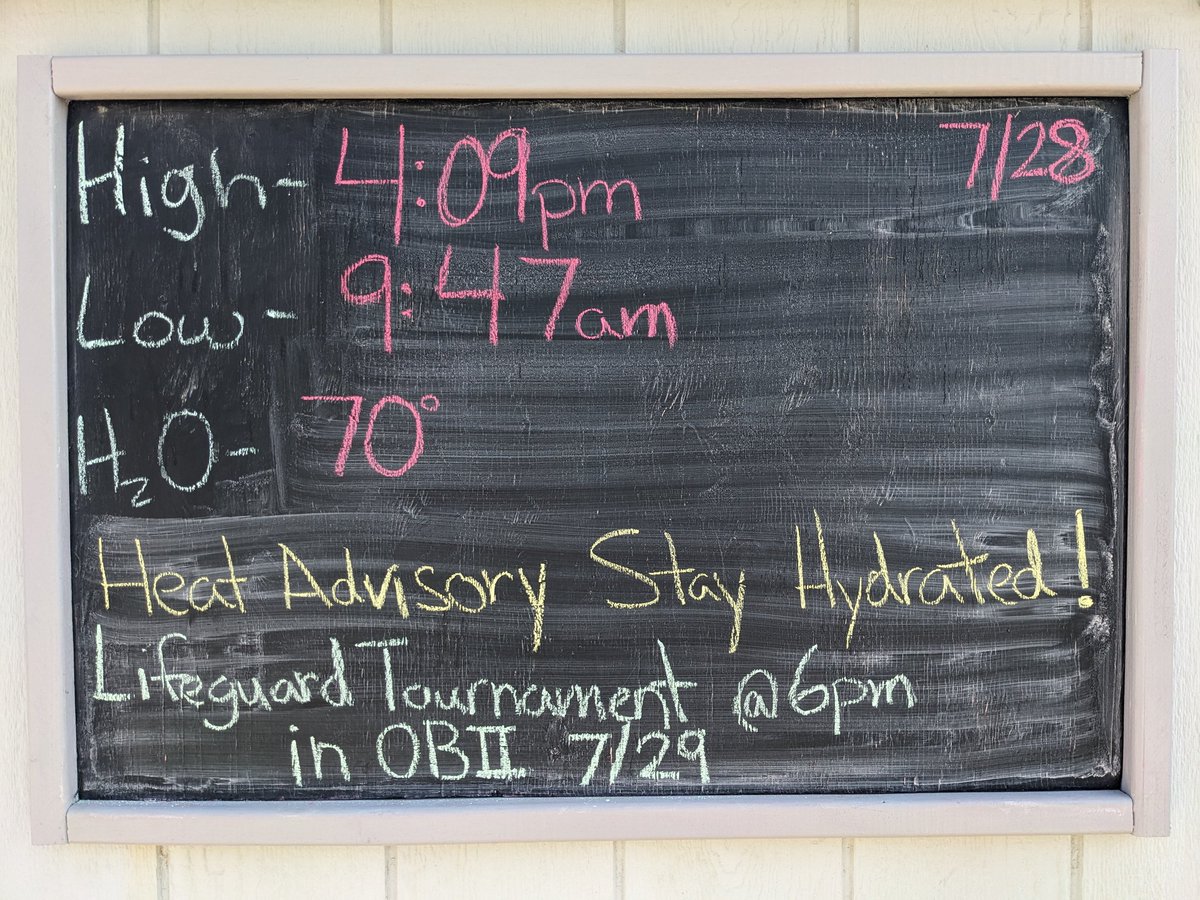 High- 4:09pm 7/28
Low- 9:47am
H₂O- 70°
Heat Advisory Stay Hydrated!
Lifeguard Tournament @6pm
in OBII 7/29